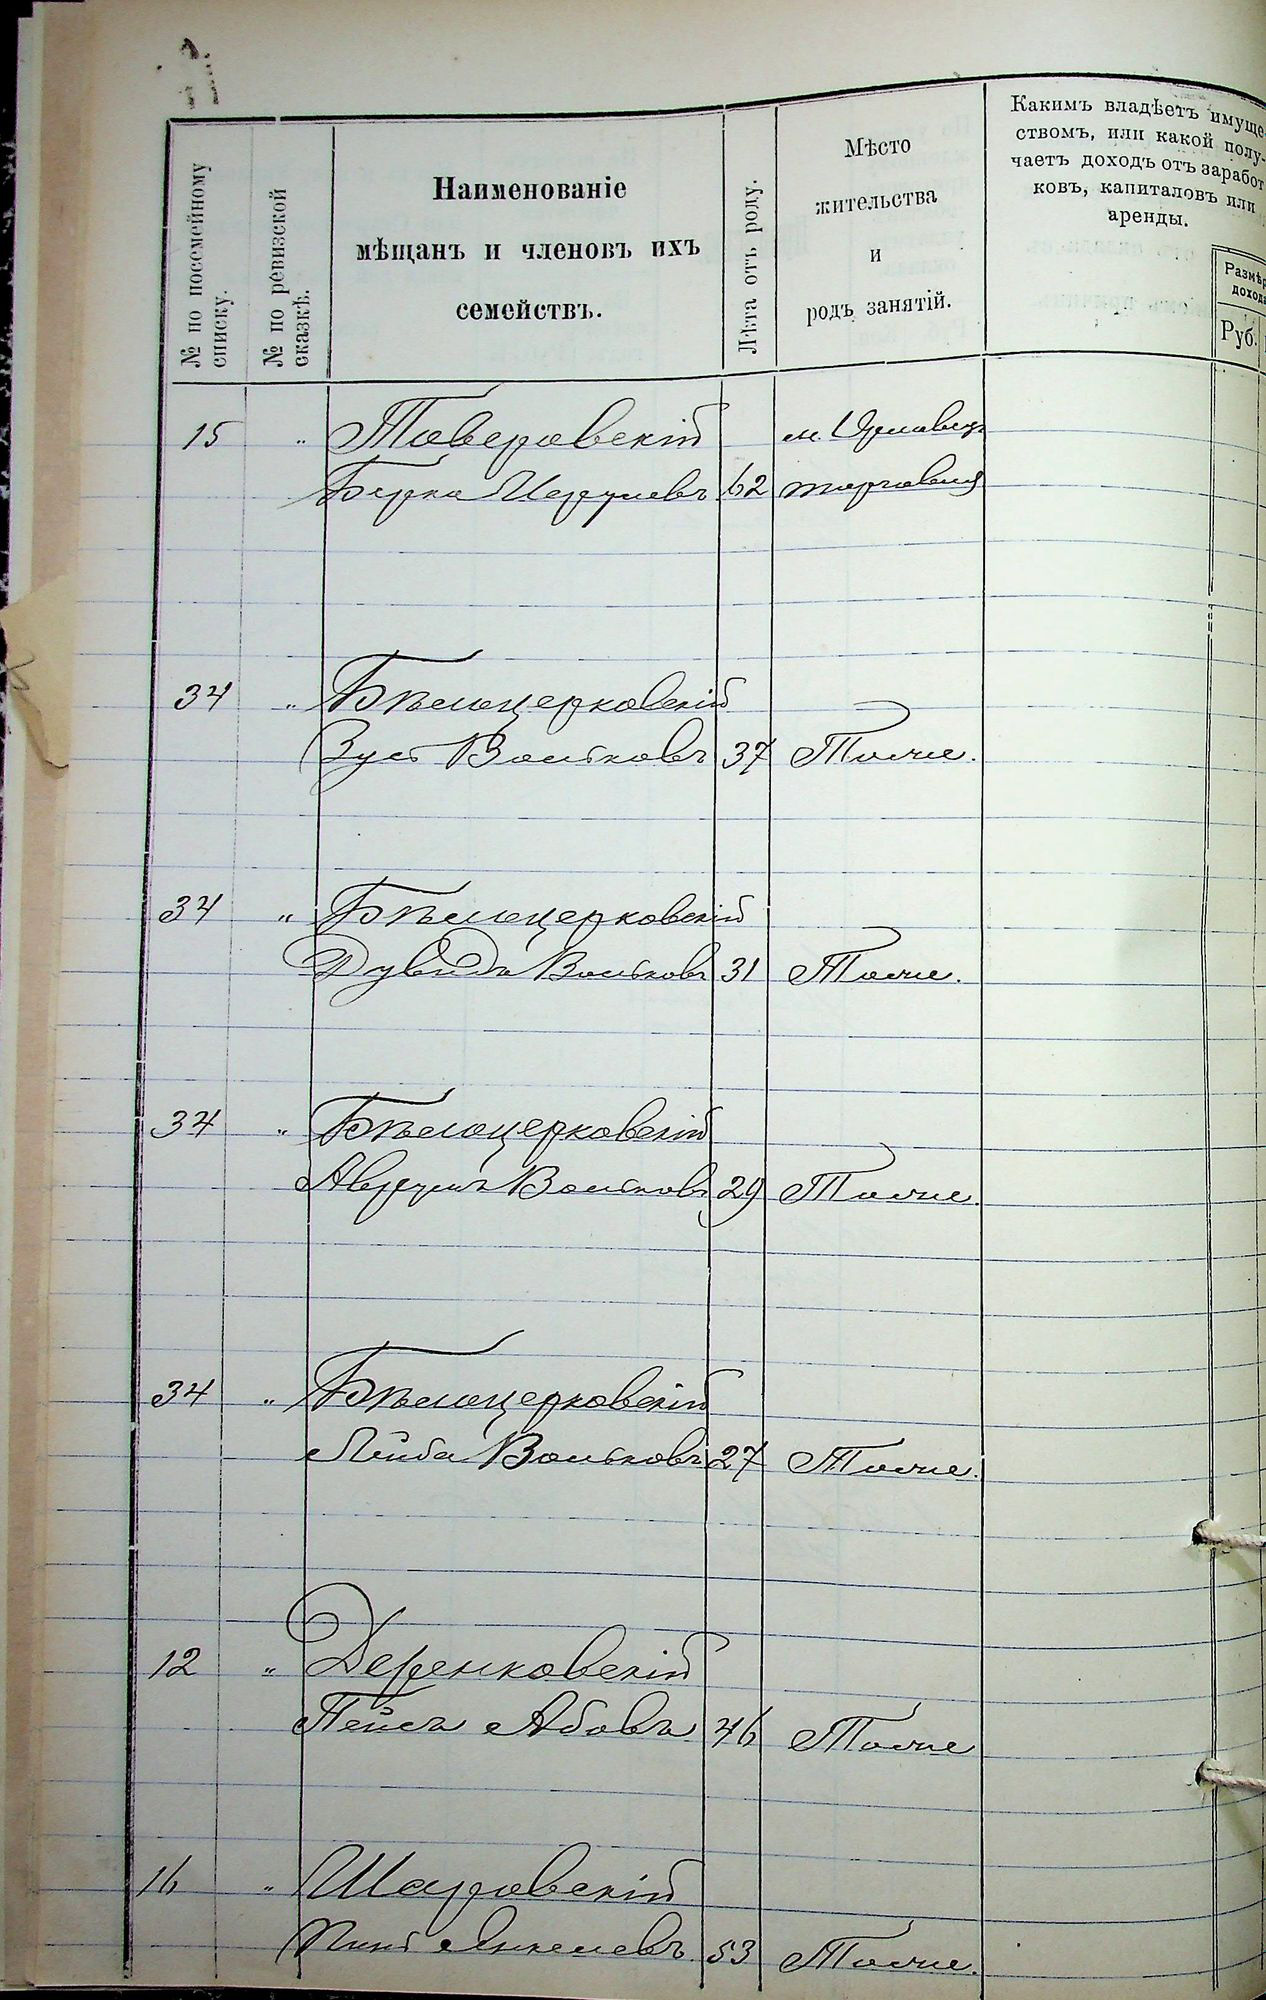 № по посемейному
списку.
№ по ревизской
сказкѣ.
Наименованіе
мѣщанъ и членовъ ихъ
семействъ.
Лѣта отъ роду.
Мѣсто
жительства
и
родъ занятій.
Какимъ владѣетъ имуще-
ствомъ, или какой полу-
чаетъ доходъ отъ заработ
ковъ, капиталовъ или
аренды.
Размѣр
дохода
Руб.
15 " Таверовскій м. Орловец
Берко 62 торговля
34 " Бѣлоцерковскій
Зусь Вольковъ 37 Тоже.
34 " Бѣлоцерковскій
Дувидъ Вольковъ 31 Тоже.
34 " Бѣлоцерковскій
Аврумъ Вольковъ 29 Тоже.
34 " Бѣлоцерковскій
Лейба Вольковъ 27 Тоже.
12 " Деренковскій
Пейсъ Абовъ 46 Тоже
16 " Шаровскій
Янкелевъ 53 Тоже.